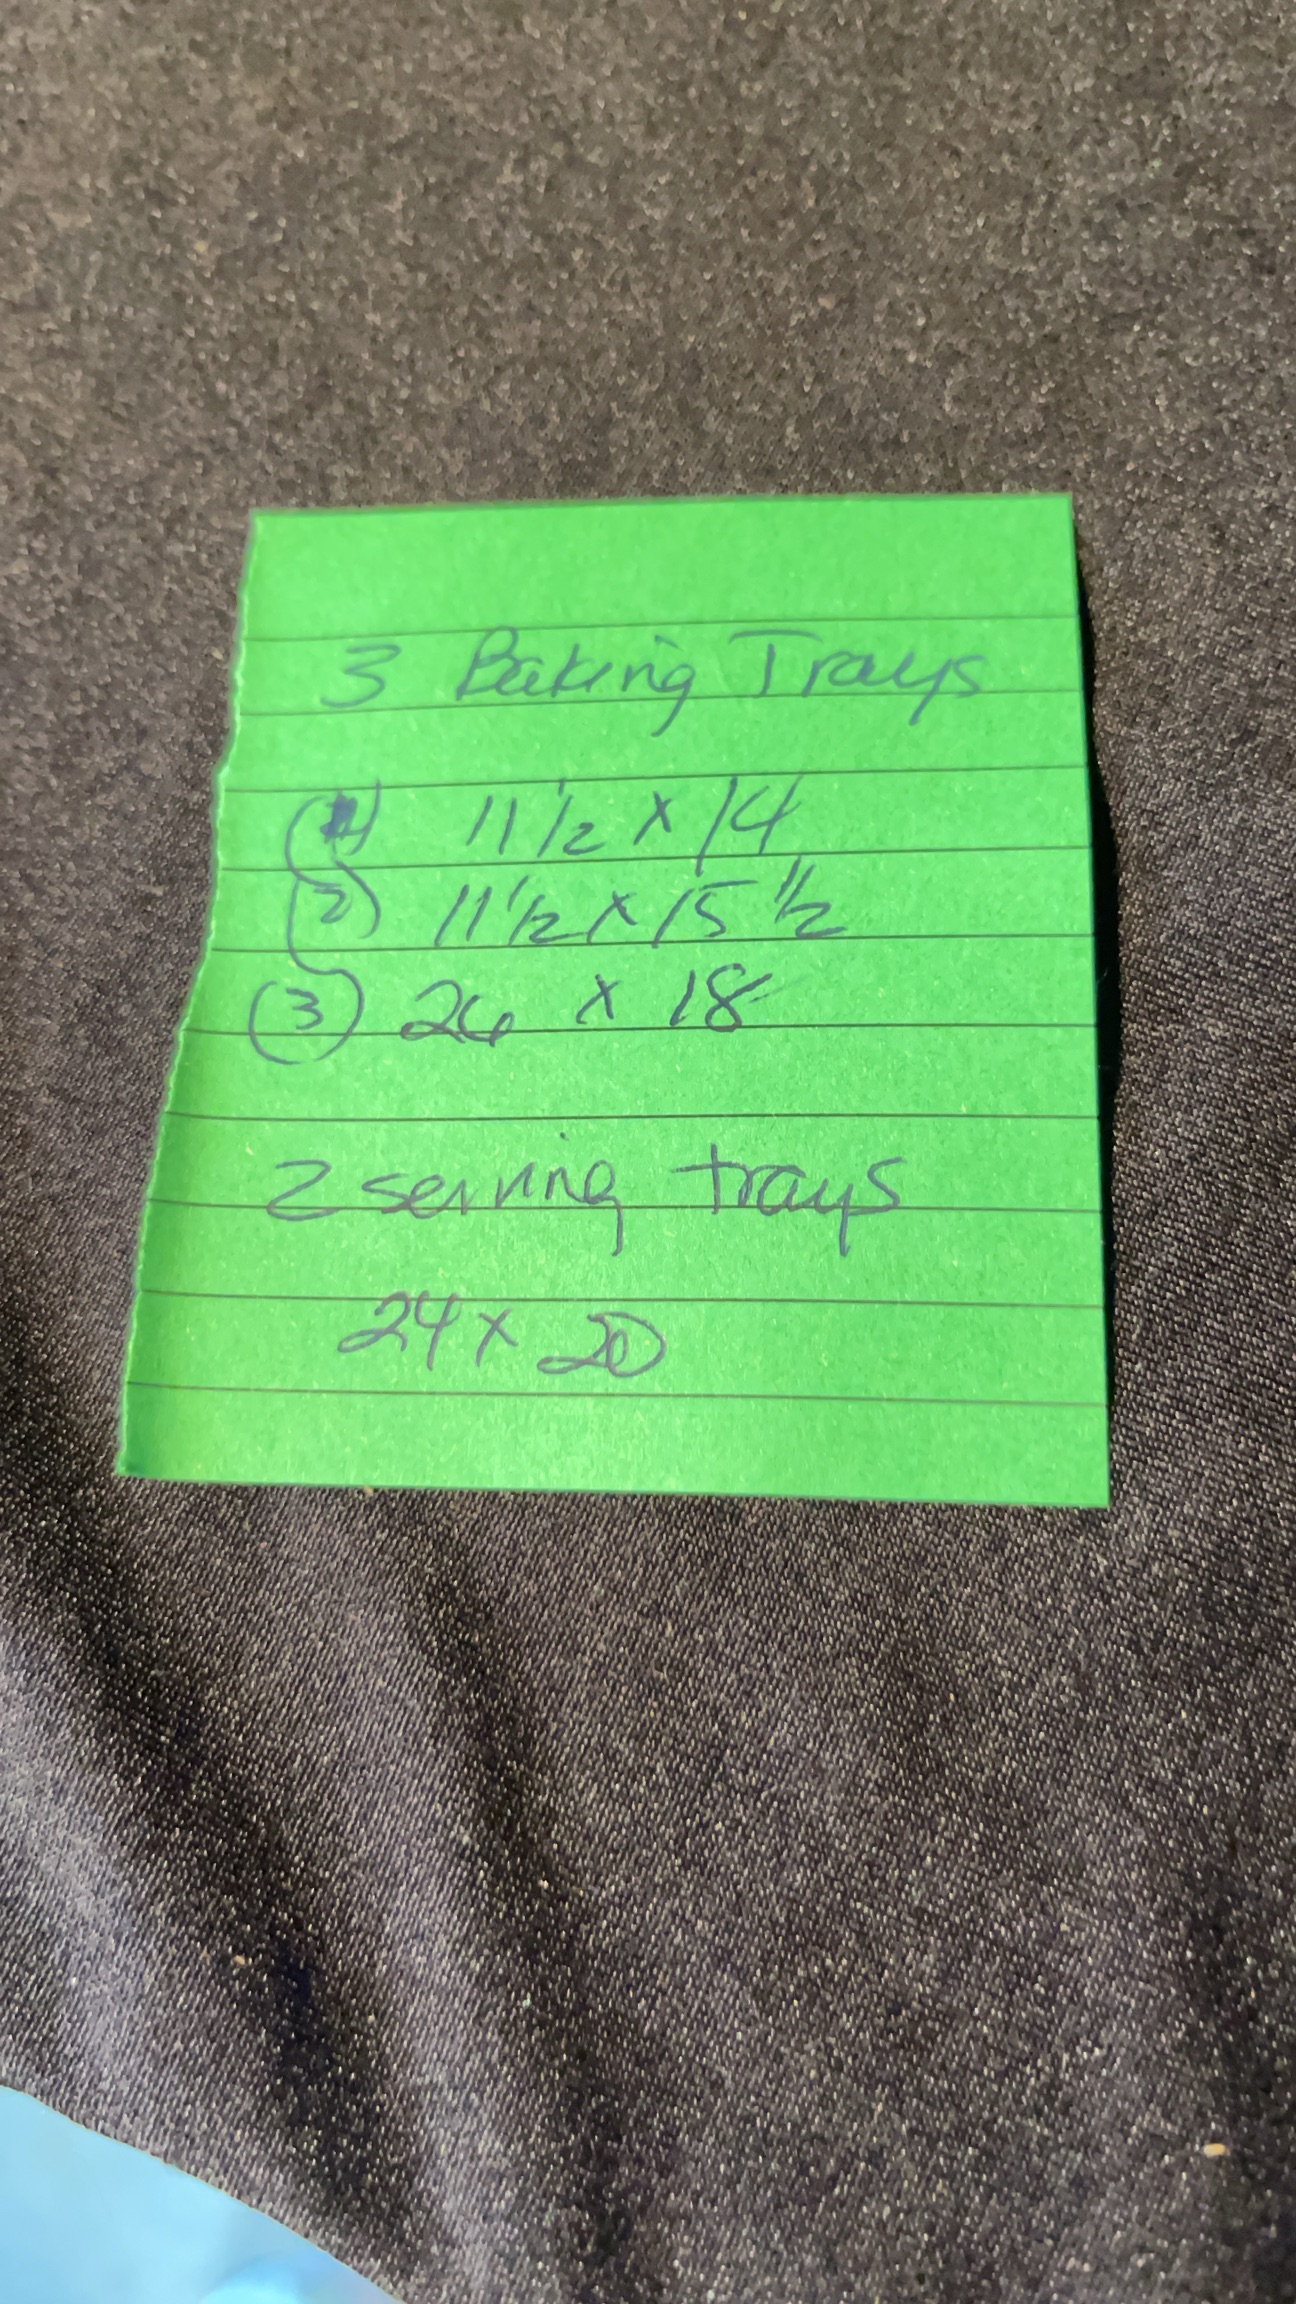 3 Baking Trays
1) 11 1/2 x 14
2) 11 1/2 x 15 1/2
3 26 x 18
2 serving trays
24 x 20